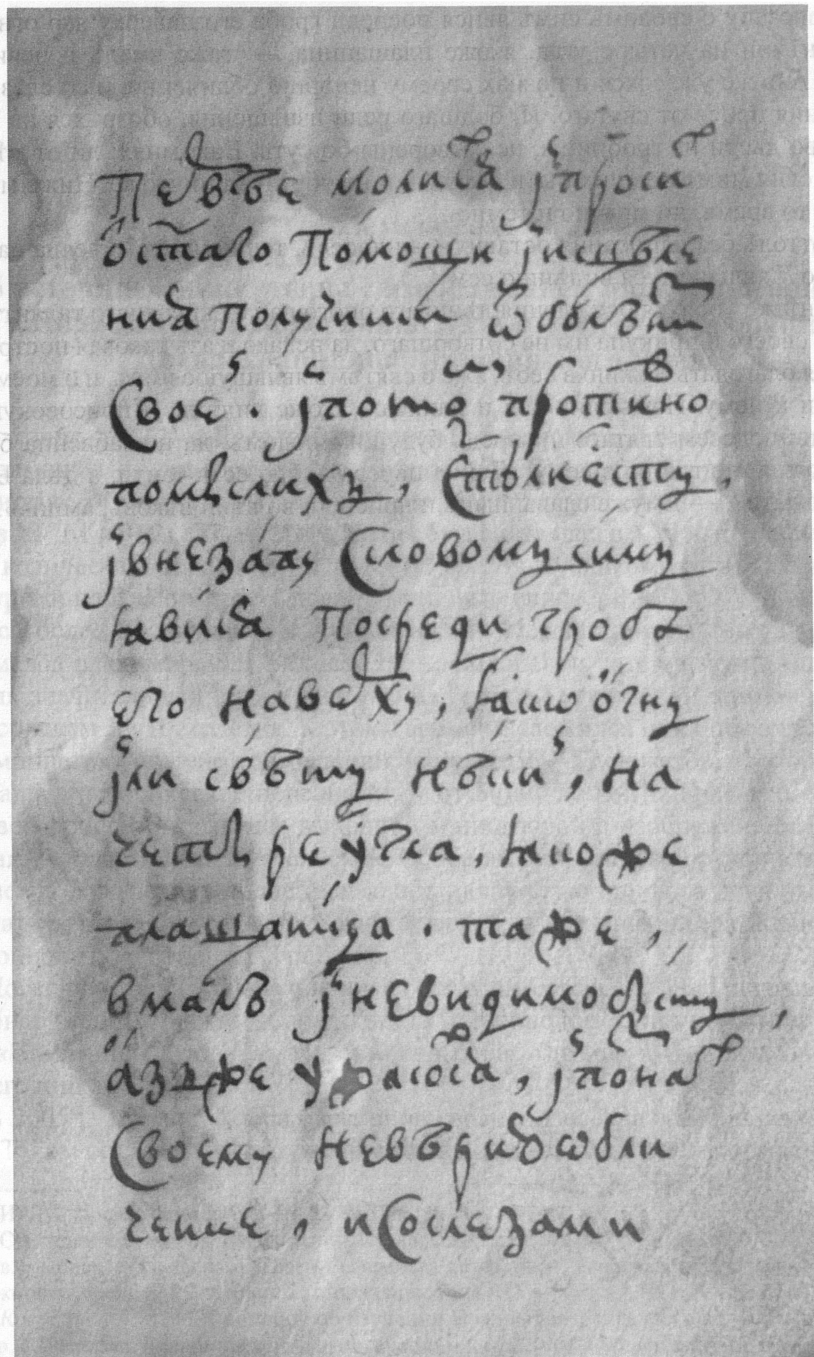 Первѣе молисѧ и҆проси
ѻ҆ст҃аго помощи и҆сцѣле
ниѧ получити ѿ болѣзни
своеѧ. и҆ потом противно
помыслихъ,
и҆ внезапу словому симу
ꙗвисѧ посреди гроба
его наверху, ꙗко огню
или свѣту нѣкии, на
четыре угла, ꙗко же
плащаница. таже,
вмалѣ и҆ невидимо бысть,
азъ же ужасохсѧ, и҆ познах
своему невѣрию ѡбли
чение, и со слезами